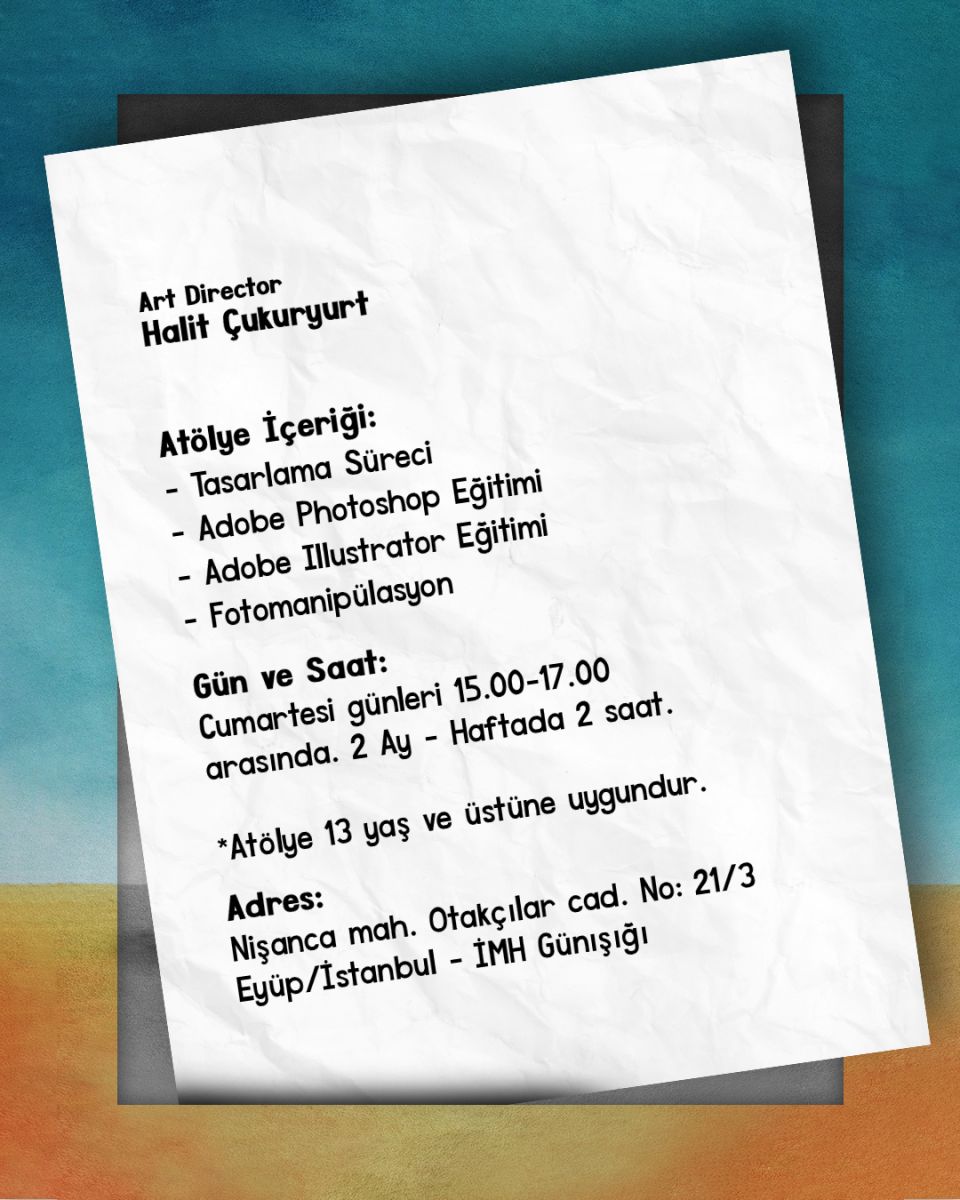 Art Director
Halit Çukuryurt
Atölye İçeriği:
- Tasarlama Süreci
- Adobe Photoshop Eğitimi
- Adobe Illustrator Eğitimi
- Fotomanipülasyon
Gün ve Saat:
Cumartesi günleri 15.00-17.00
arasında. 2 Ay - Haftada 2 saat.
*Atölye 13 yaş ve üstüne uygundur.
Adres:
Nişanca mah. Otakçılar cad. No: 21/3
Eyüp/İstanbul - İMH Günışığı